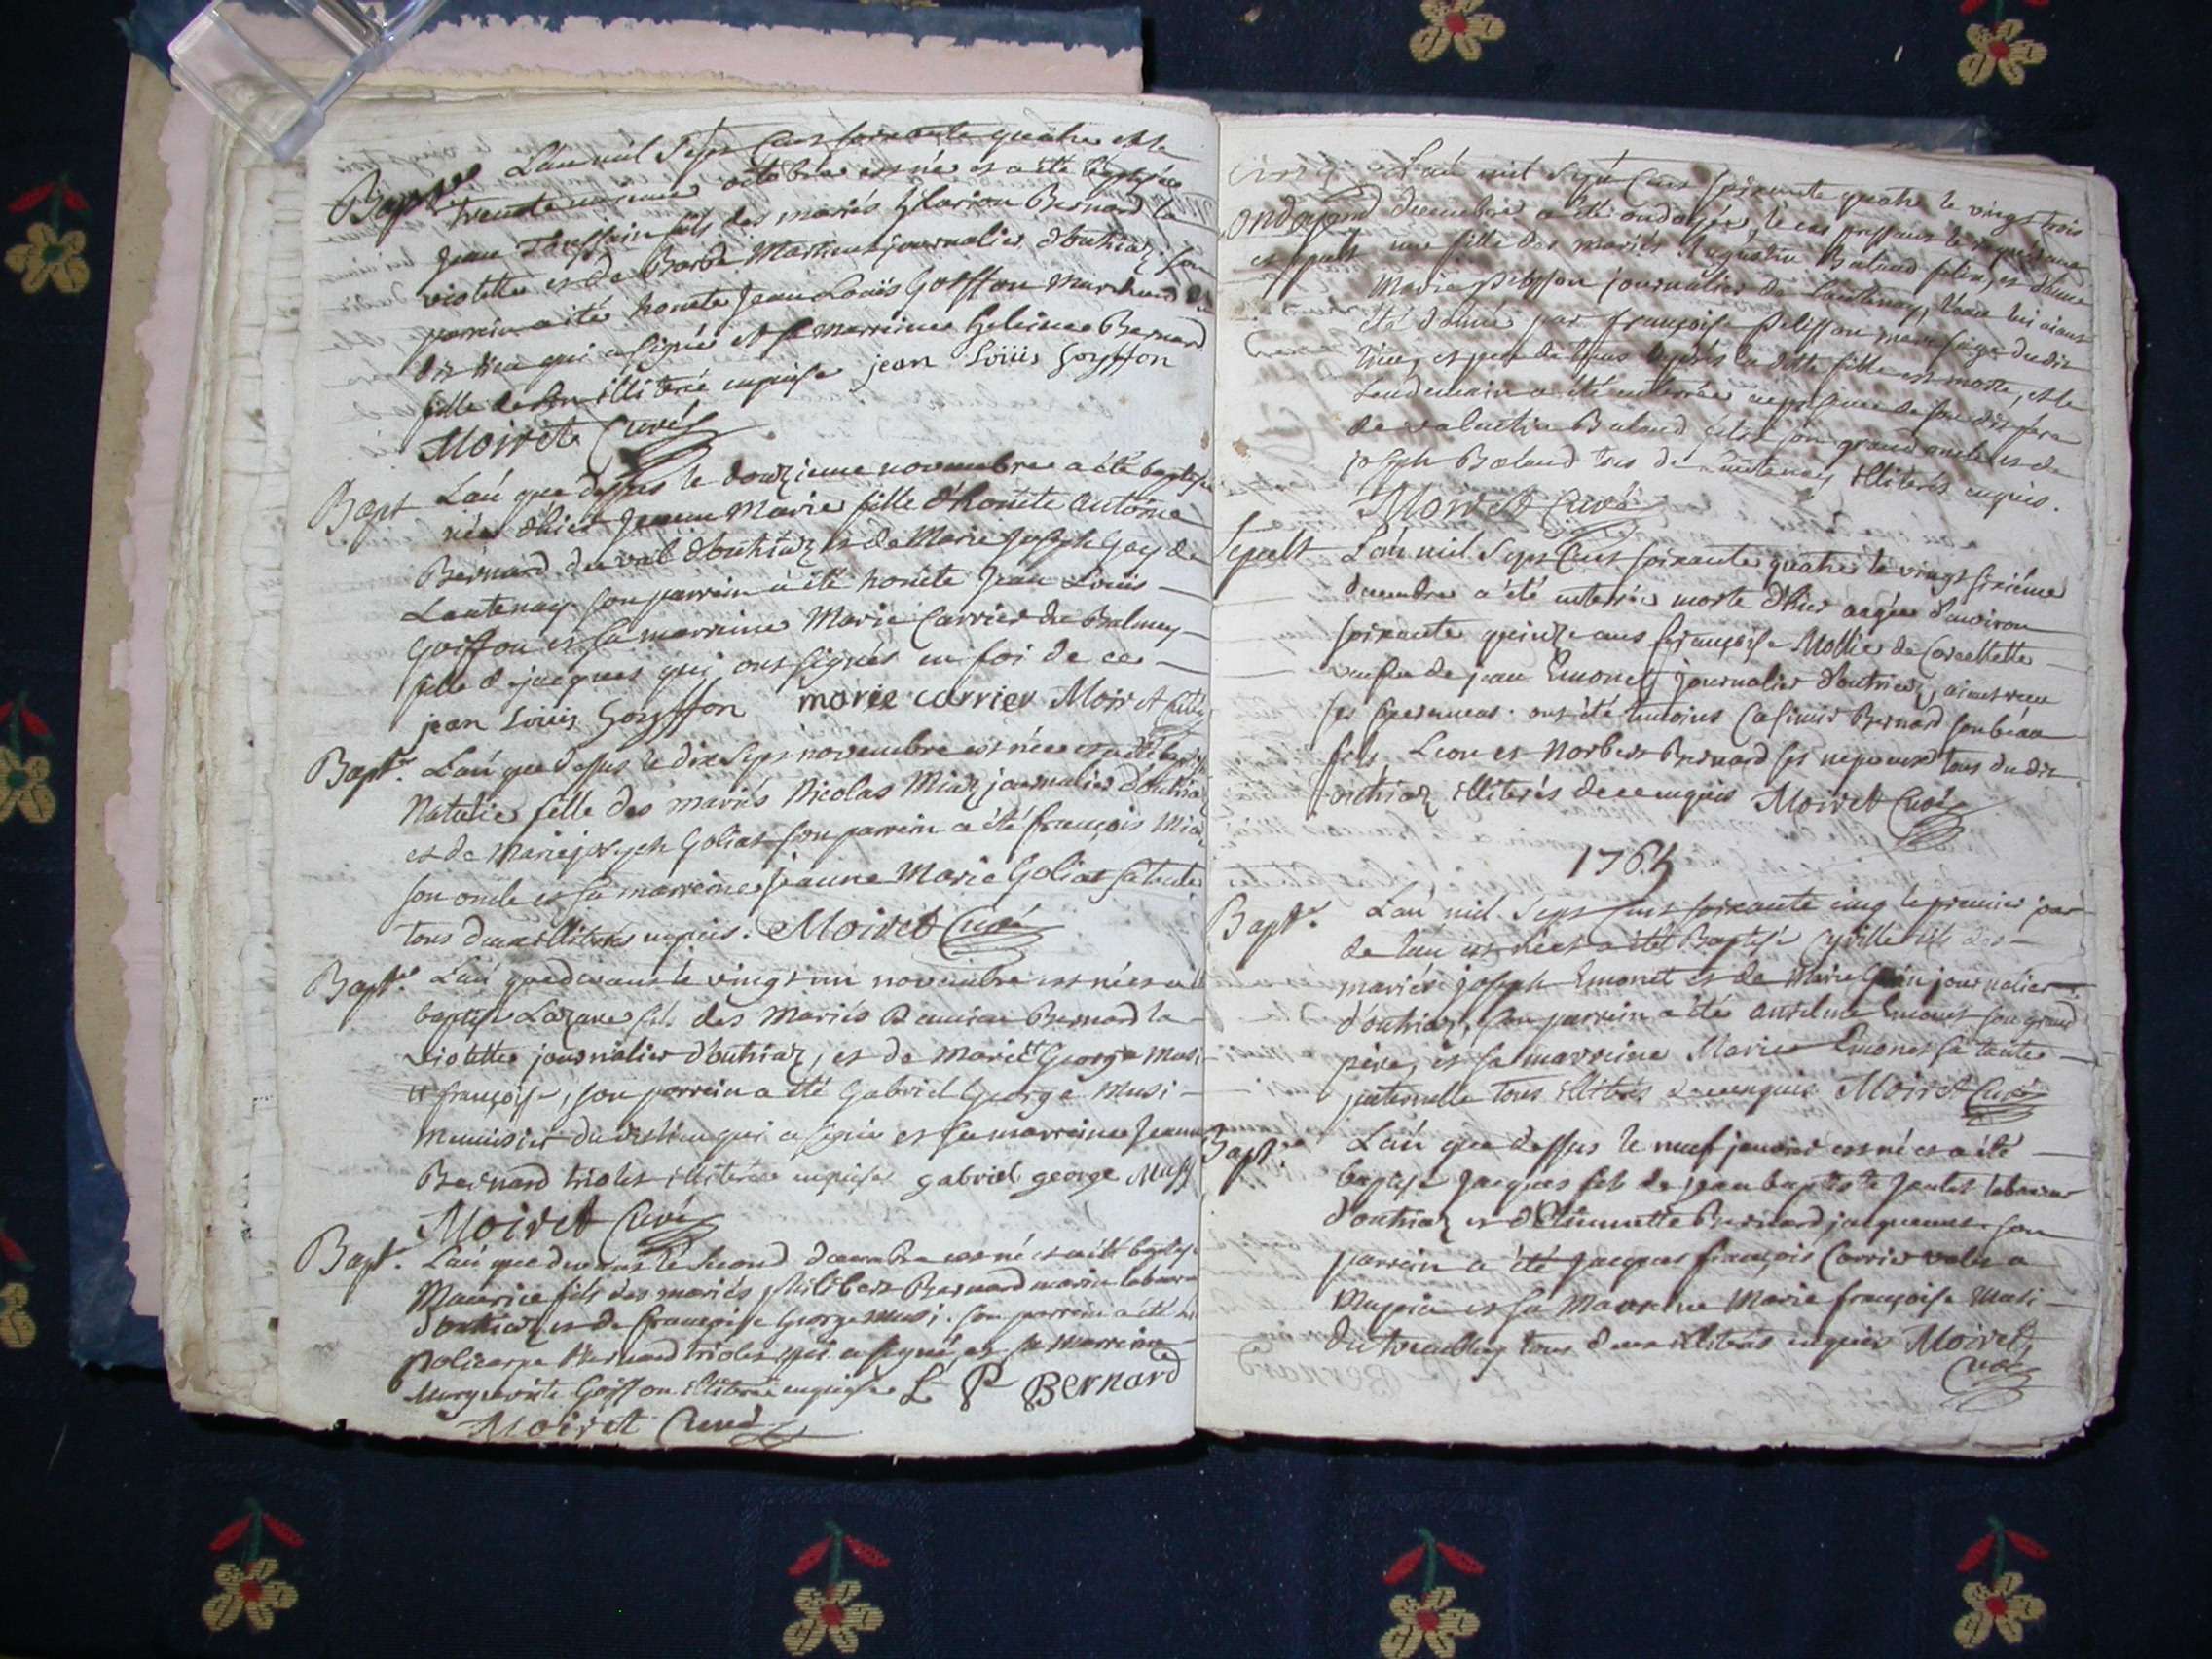 Bapt.e L'an mil sept cens soixante quatre et le
trente unieme octobre est né et a été baptisé
jean Toussain fils des mariés hilarion Bernard la
violette et de Barbe Martinet journalier d'outriaz son
parrein a été honete Jean Loüis Goiffon marchand du
dit lieu qui a signé et sa marreine Bernard
fille de illiterée enquise jean loüis goyffon
Moiret Curé
Bapt L'an que dessus le douzieme novembre a été baptisée
née d'hier Jeanne Marie fille d'honete antoine
Bernard du val d'outriaz et de Marie Joseph Gay de
Lantenay son parrein a été honete Jean Loüis
Goiffon et sa marreine Marie Carrier du Balmey
fille de jacques qui ont signés en foi de ce
jean loüis goyffon marie carrier Moiret Curé
Bapt.e L'an que dessus le dix sept novembre est née et a été baptisée
Natalie fille des mariés Nicolas Miaz journalier d'outriaz
et de Marie joseph Goliat son parrein a été françois Miaz
son oncle et sa marreine jeanne Marie Goliat sa tante
tous deux illiterés enquis. Moiret Curé
Bapt.e L'an que devant le vingt un novembre est né et a été
baptisé Lazare fils des Mariés Damien Bernard la
violette journalier d'outriaz, et de Marie George Musi
françoise, son parrein a été Gabriel George Musi
menuisier du dit lieu qui a signé et sa marreine Jeanne
Bernard triolet illiterée enquise gabriel george Musy
Moiret Curé
Bapt.e L'an que devant le second decembre est né et a été baptisé
Maurice fils des mariés philibert Bernard marin laboureur
d'outriaz et de françoise George Musi. son parrein a été
policarpe Bernard triolet qui a signé, et sa marreine
Margueritte Goiffon illiterée enquise L P Bernard
Moiret Curé
L'an mil sept cens soixante quatre le vingt trois
ondoyem decembre a été ondoyée, le cas pressant le requérant
et sepult une fille des mariés Augustin Balaud felix, et d'anne
Marie pelisson journalier de Lantenay, l'eau lui aiant
été donnée par françoise pelisson mere sage du dit
lieu, et peu de tems après la ditte fille est morte, et le
lendemain a été enterrée en présence de son dit pere
de valentin Balaud felix son grand oncle et de
joseph Balaud tous de Lantenay illiterés enquis.
Moiret Curé
Sepult L'an mil sept cens soixante quatre le vingt sixième
decembre a été enterrée morte d'hier aagée d'environ
soixante quinze ans françoise Mollie de Corcellette
veufve de jean Emonet journalier d'outriaz, aiant reçu
ses sacremens. ont été témoins Casimir Bernard son béau
fils, Leon et Norbert Bernard ses nepveux tous du dit
outriaz illiterés de ce enquis Moiret Curé
1765
Bapt.e L'an mil sept cens soixante cinq le premier jour
de l'an est né et a été Baptisé Cyrille fils des
mariés joseph Emonet et de Marie journalier
d'outriaz, son parrein a été anselme Emonet son grand
pére, et sa marreine Marie Emonet sa tante
paternelle tous illiterés de ce enquis Moiret Curé
Bapt.e L'an que dessus le neuf janvier est né et a été
baptisé Jacques fils de jean baptiste Jantet laboureur
d'outriaz et d'Etiennette Bernard jacquemet son
parrein a été Jacques françois Carrier valet a
et sa Marreine Marie françoise Musi
du tous deux illiterés enquis Moiret
Curé